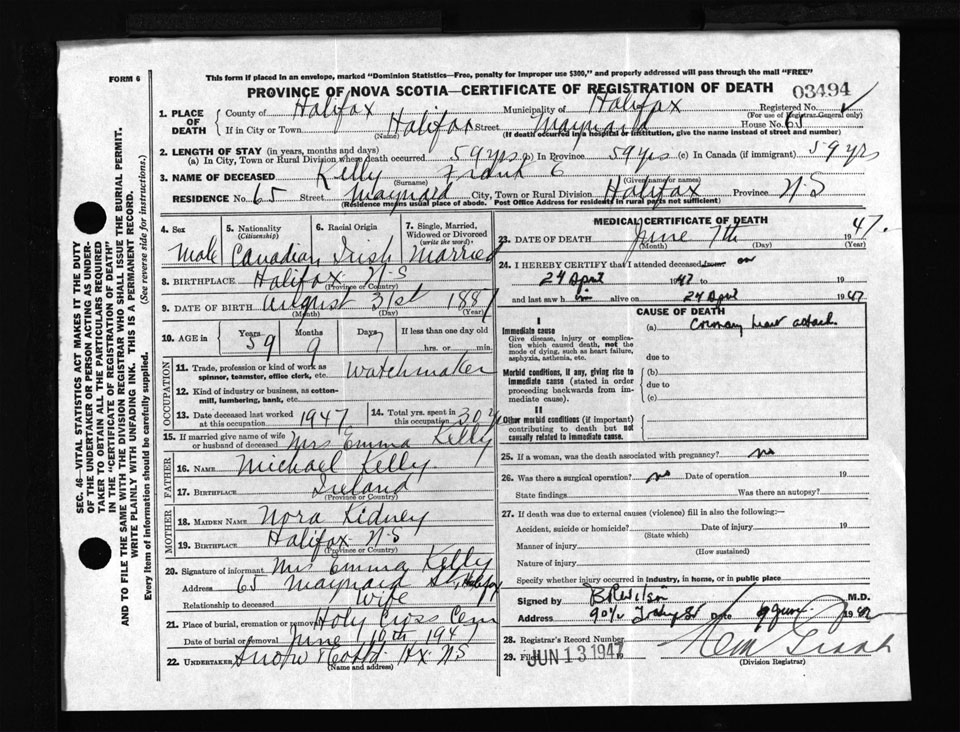 FORM 6
This form if placed in an envelope, marked "Dominion Statistics—Free, penalty for improper use $300," and properly addressed will pass through the mail "FREE"
PROVINCE OF NOVA SCOTIA—CERTIFICATE OF REGISTRATION OF DEATH
03494
1. PLACE OF DEATH
County of Halifax Municipality of Halifax Registered No.
(For use of Registrar General only)
If in City or Town Halifax Street Maynard House No. 65
(Name) (If death occurred in a hospital or institution, give the name instead of street and number)
2. LENGTH OF STAY (in years, months and days)
(a) In City, Town or Rural Division where death occurred 59 yrs (b) In Province 59 yrs (c) In Canada (if immigrant) 59 yrs
3. NAME OF DECEASED Kelly Frank
(Surname) (Given name or names)
RESIDENCE No. 65 Street Maynard City, Town or Rural Division Halifax Province N.S
(Residence means usual place of abode. Post Office Address for residents in rural parts not sufficient)
4. Sex Male
5. Nationality (Citizenship) Canadian
6. Racial Origin Irish
7. Single, Married, Widowed or Divorced (write the word) Married
8. BIRTHPLACE Halifax N.S
(Province or Country)
9. DATE OF BIRTH August 31st 1887
(Month) (Day) (Year)
10. AGE in Years 59 Months 9 Days 7 If less than one day old
hrs. or min.
OCCUPATION
11. Trade, profession or kind of work as spinner, teamster, office clerk, etc. Watchmaker
12. Kind of industry or business, as cotton-mill, lumbering, bank, etc.
13. Date deceased last worked at this occupation 1947
14. Total yrs. spent in this occupation 30 y
15. If married give name of wife or husband of deceased Mrs Emma Kelly
FATHER
16. NAME Michael Kelly
17. BIRTHPLACE Ireland
(Province or Country)
MOTHER
18. MAIDEN NAME Nora Kidney
19. BIRTHPLACE Halifax N.S
(Province or Country)
20. Signature of informant Mrs Emma Kelly
Address 65 Maynard St, Halifax
Relationship to deceased Wife
21. Place of burial, cremation or removal Holy Cross Cem
Date of burial or removal June 10th 1947
22. UNDERTAKER Snow Hx. N.S
(Name and address)
MEDICAL CERTIFICATE OF DEATH
23. DATE OF DEATH June 7th 1947.
(Month) (Day) (Year)
24. I HEREBY CERTIFY that I attended deceased from on
24 April 1947 to 19
and last saw him alive on 24 April 1947
CAUSE OF DEATH
I
Immediate cause
Give disease, injury or complication which caused death, not the mode of dying, such as heart failure, asphyxia, asthenia, etc.
(a) Coronary heart attack
due to
Morbid conditions, if any, giving rise to immediate cause (stated in order proceeding backwards from immediate cause).
(b)
due to
(c)
II
Other morbid conditions (if important) contributing to death but not causally related to immediate cause.
25. If a woman, was the death associated with pregnancy? no
26. Was there a surgical operation? no Date of operation 19
State findings Was there an autopsy?
27. If death was due to external causes (violence) fill in also the following:—
Accident, suicide or homicide? Date of injury 19
(State which)
Manner of injury
(How sustained)
Nature of injury
Specify whether injury occurred in industry, in home, or in public place
Signed by M.D.
Address Date 9 June 1947
28. Registrar's Record Number
29. Filed JUN 13 1947 19
(Division Registrar)
SEC. 46—VITAL STATISTICS ACT MAKES IT THE DUTY
OF THE UNDERTAKER OR PERSON ACTING AS UNDER-
TAKER TO OBTAIN ALL THE PARTICULARS REQUIRED
IN THE "CERTIFICATE OF REGISTRATION OF DEATH"
AND TO FILE THE SAME WITH THE DIVISION REGISTRAR WHO SHALL ISSUE THE BURIAL PERMIT.
WRITE PLAINLY WITH UNFADING INK. THIS IS A PERMANENT RECORD.
Every item of information should be carefully supplied. (See reverse side for instructions.)